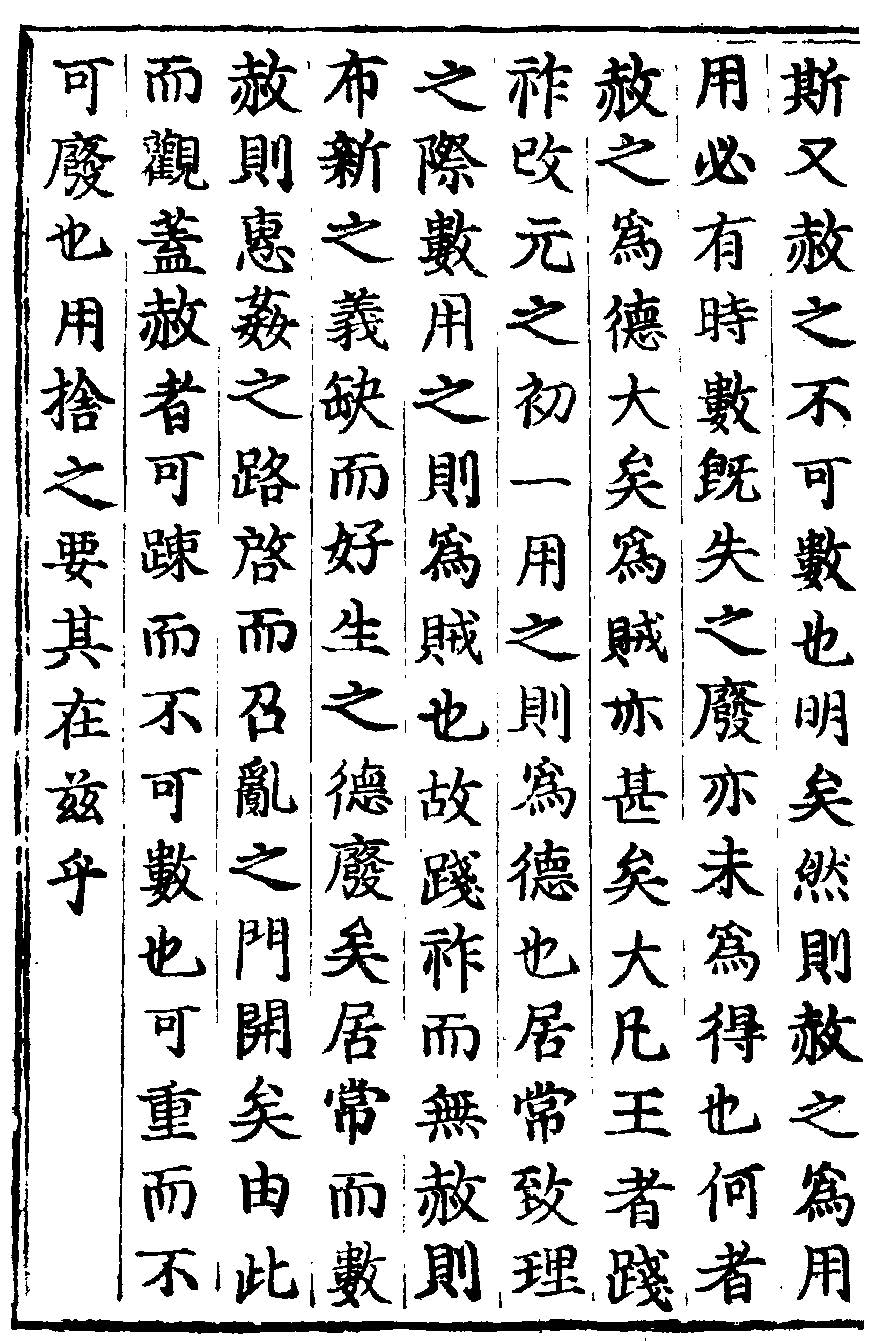 斯又赦之不可數也明矣然則赦之爲用
用必有時數旣失之廢亦未爲得也何者
赦之爲德大矣爲賊亦甚矣大凡王者踐
祚改元之初一用之則爲德也居常致理
之際數用之則爲賊也故踐祚而無赦則
布新之義缺而好生之德廢矣居常而數
赦則惠姦之路啓而召亂之門開矣由此
而觀蓋赦者可踈而不可數也可重而不
可廢也用捨之要其在兹乎